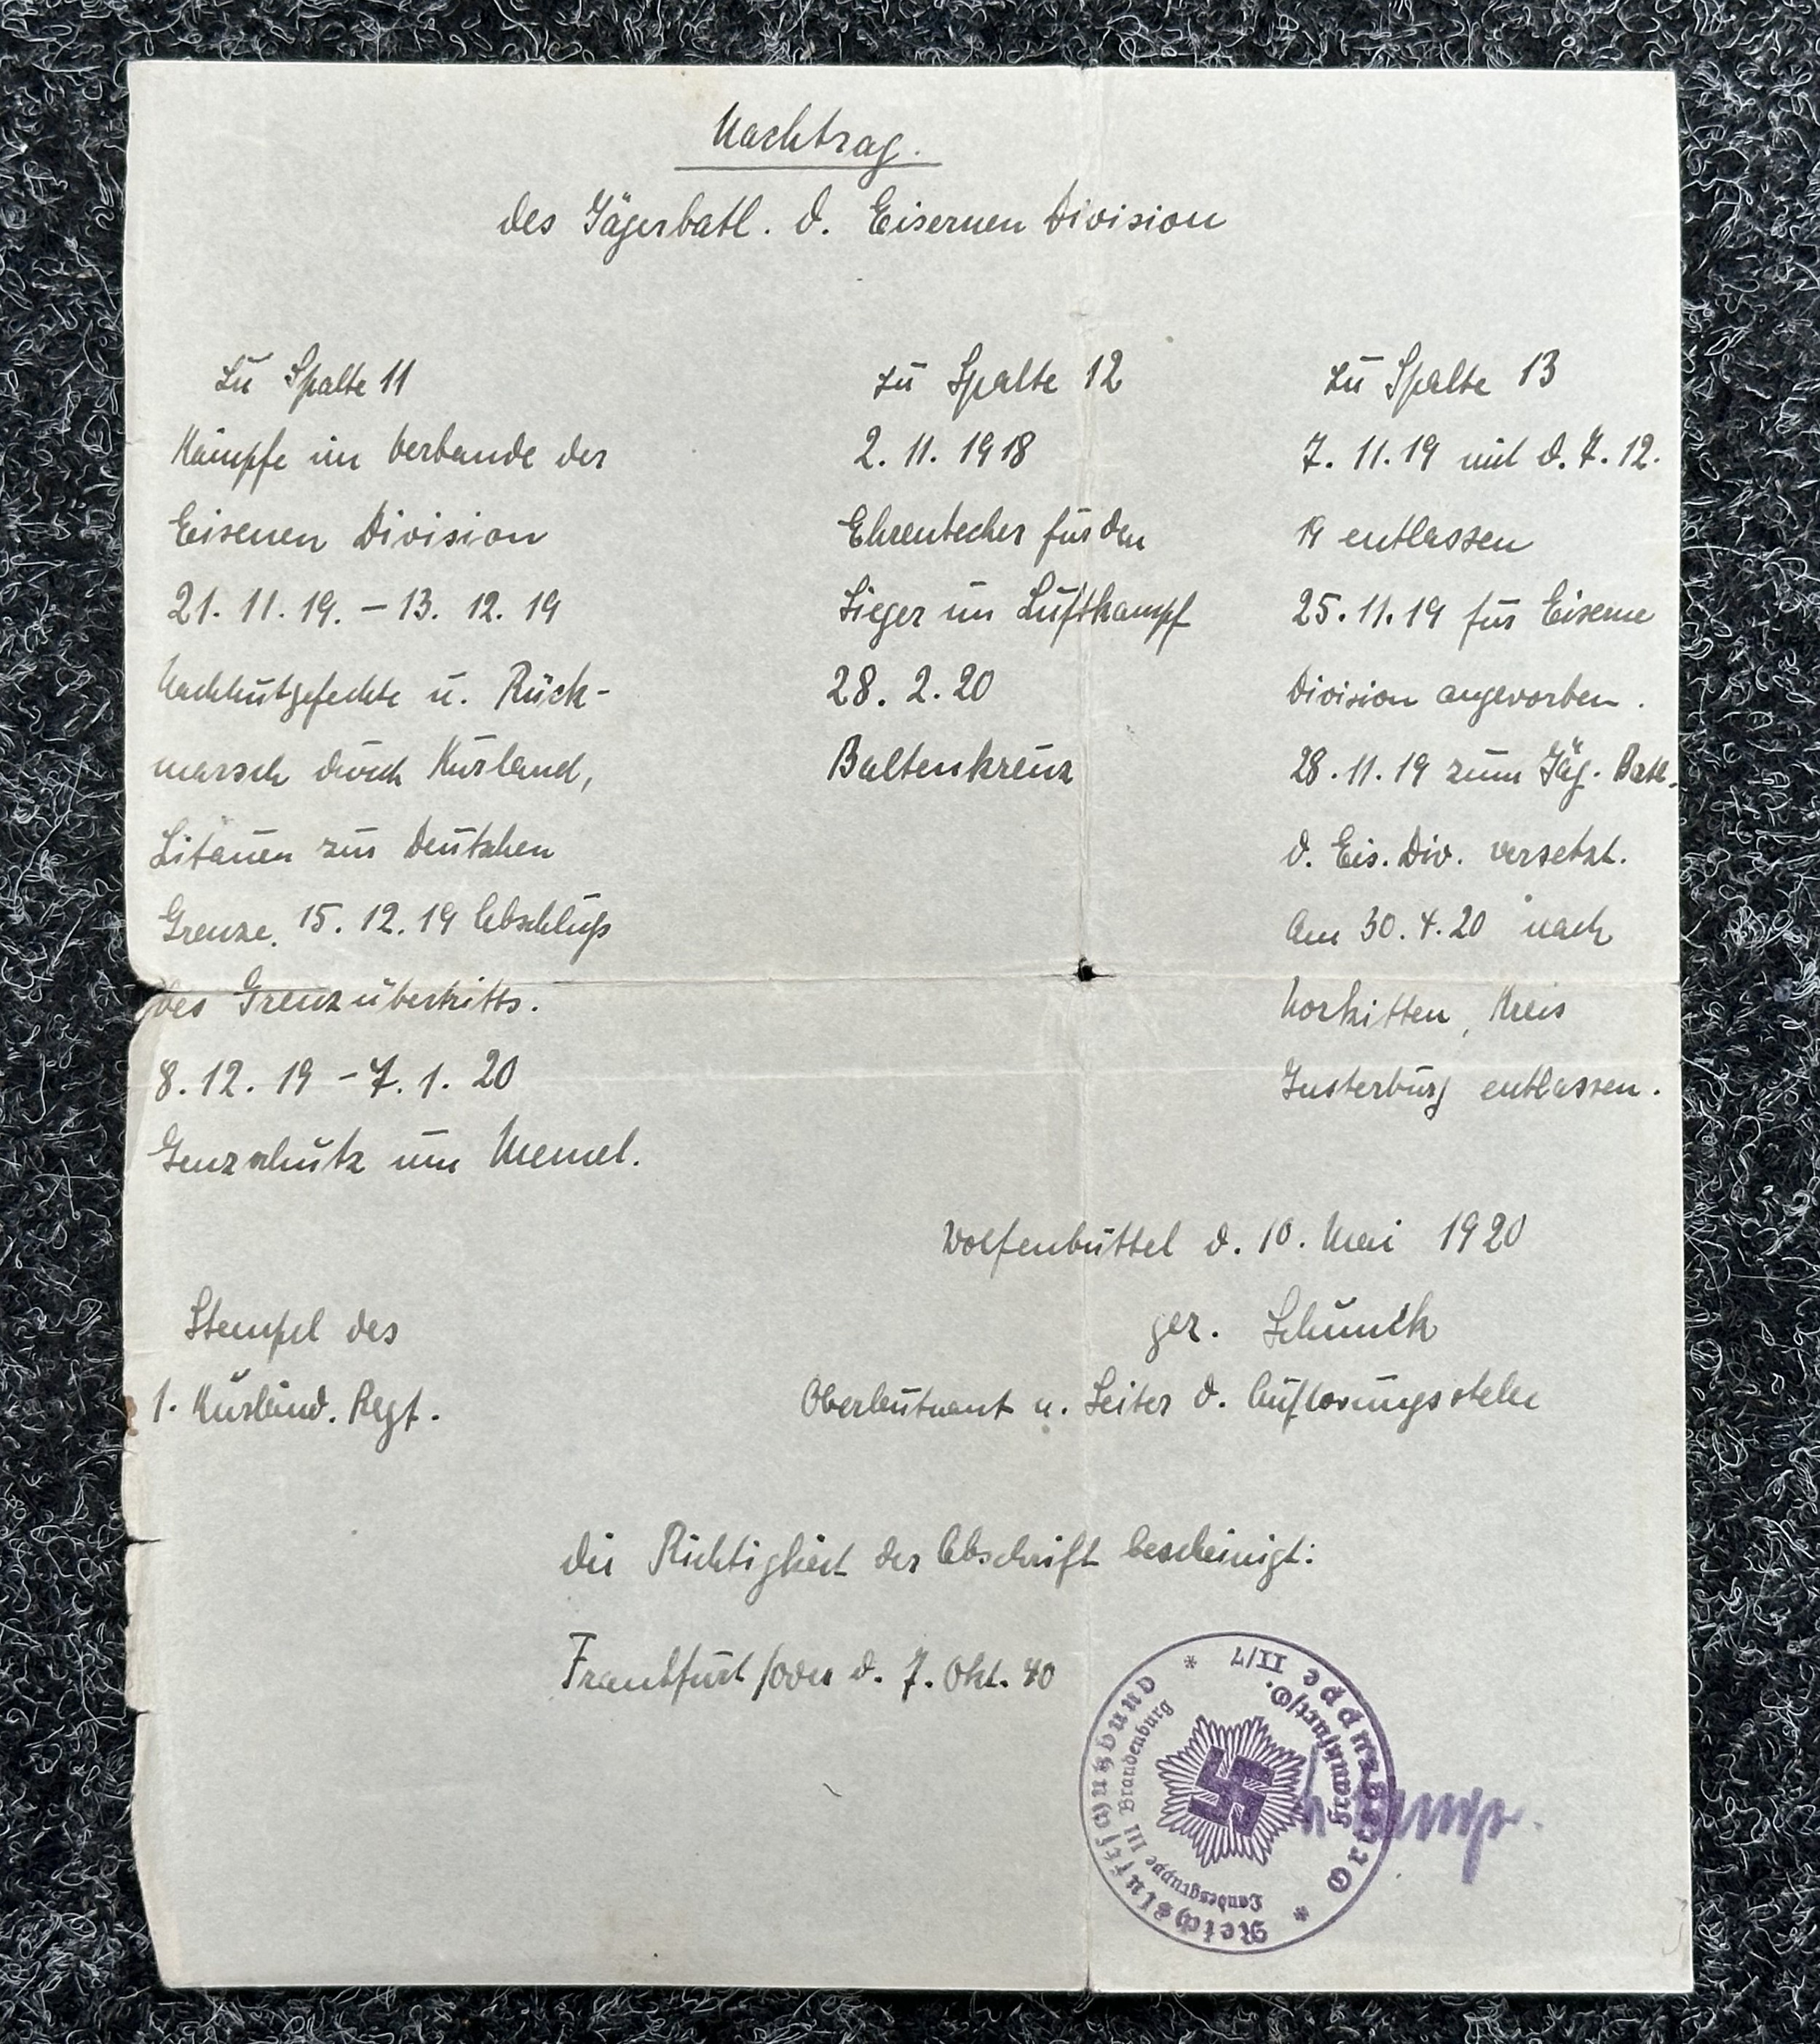 Nachtrag.
des Jägerbatl. d. Eisernen Division
Zu Spalte 11
Kämpfe im Verbande der
Eisenen Division
21. 11. 19. – 13. 12. 19
Nachhutgefechte u. Rück-
marsch durch Kurland,
Litauen zur Deutschen
Grenze. 15. 12. 19 Abschluß
des Grenzübertritts.
8. 12. 19 – 7. 1. 20
Genzschutz um Memel.
zu Spalte 12
2. 11. 1918
Ehrenbecher für den
Sieger im Luftkampf
28. 2. 20
Baltenkreuz
zu Spalte 13
7. 11. 19 mit d. 7. 12.
19 entlassen
25. 11. 19 für Eiserne
Division angeworben.
28. 11. 19 zum Jäg. Batl.
d. Eis. Div. versetzt.
Am 30. 4. 20 nach
Norkitten, Kreis
Insterburg entlassen.
Wolfenbüttel d. 10. Mai 1920
Stempel des
1. Kurländ. Regt.
gez. Schunck
Oberleutnant u. Leiter d. Auflösungsstelle
Die Richtigkeit der Abschrift bescheinigt:
Frankfurt/Oder d. 7. Okt. 40
Reichsluftschutzbund
Landesgruppe III Brandenburg
Ortsgruppe II/7
Frankfurt/O.